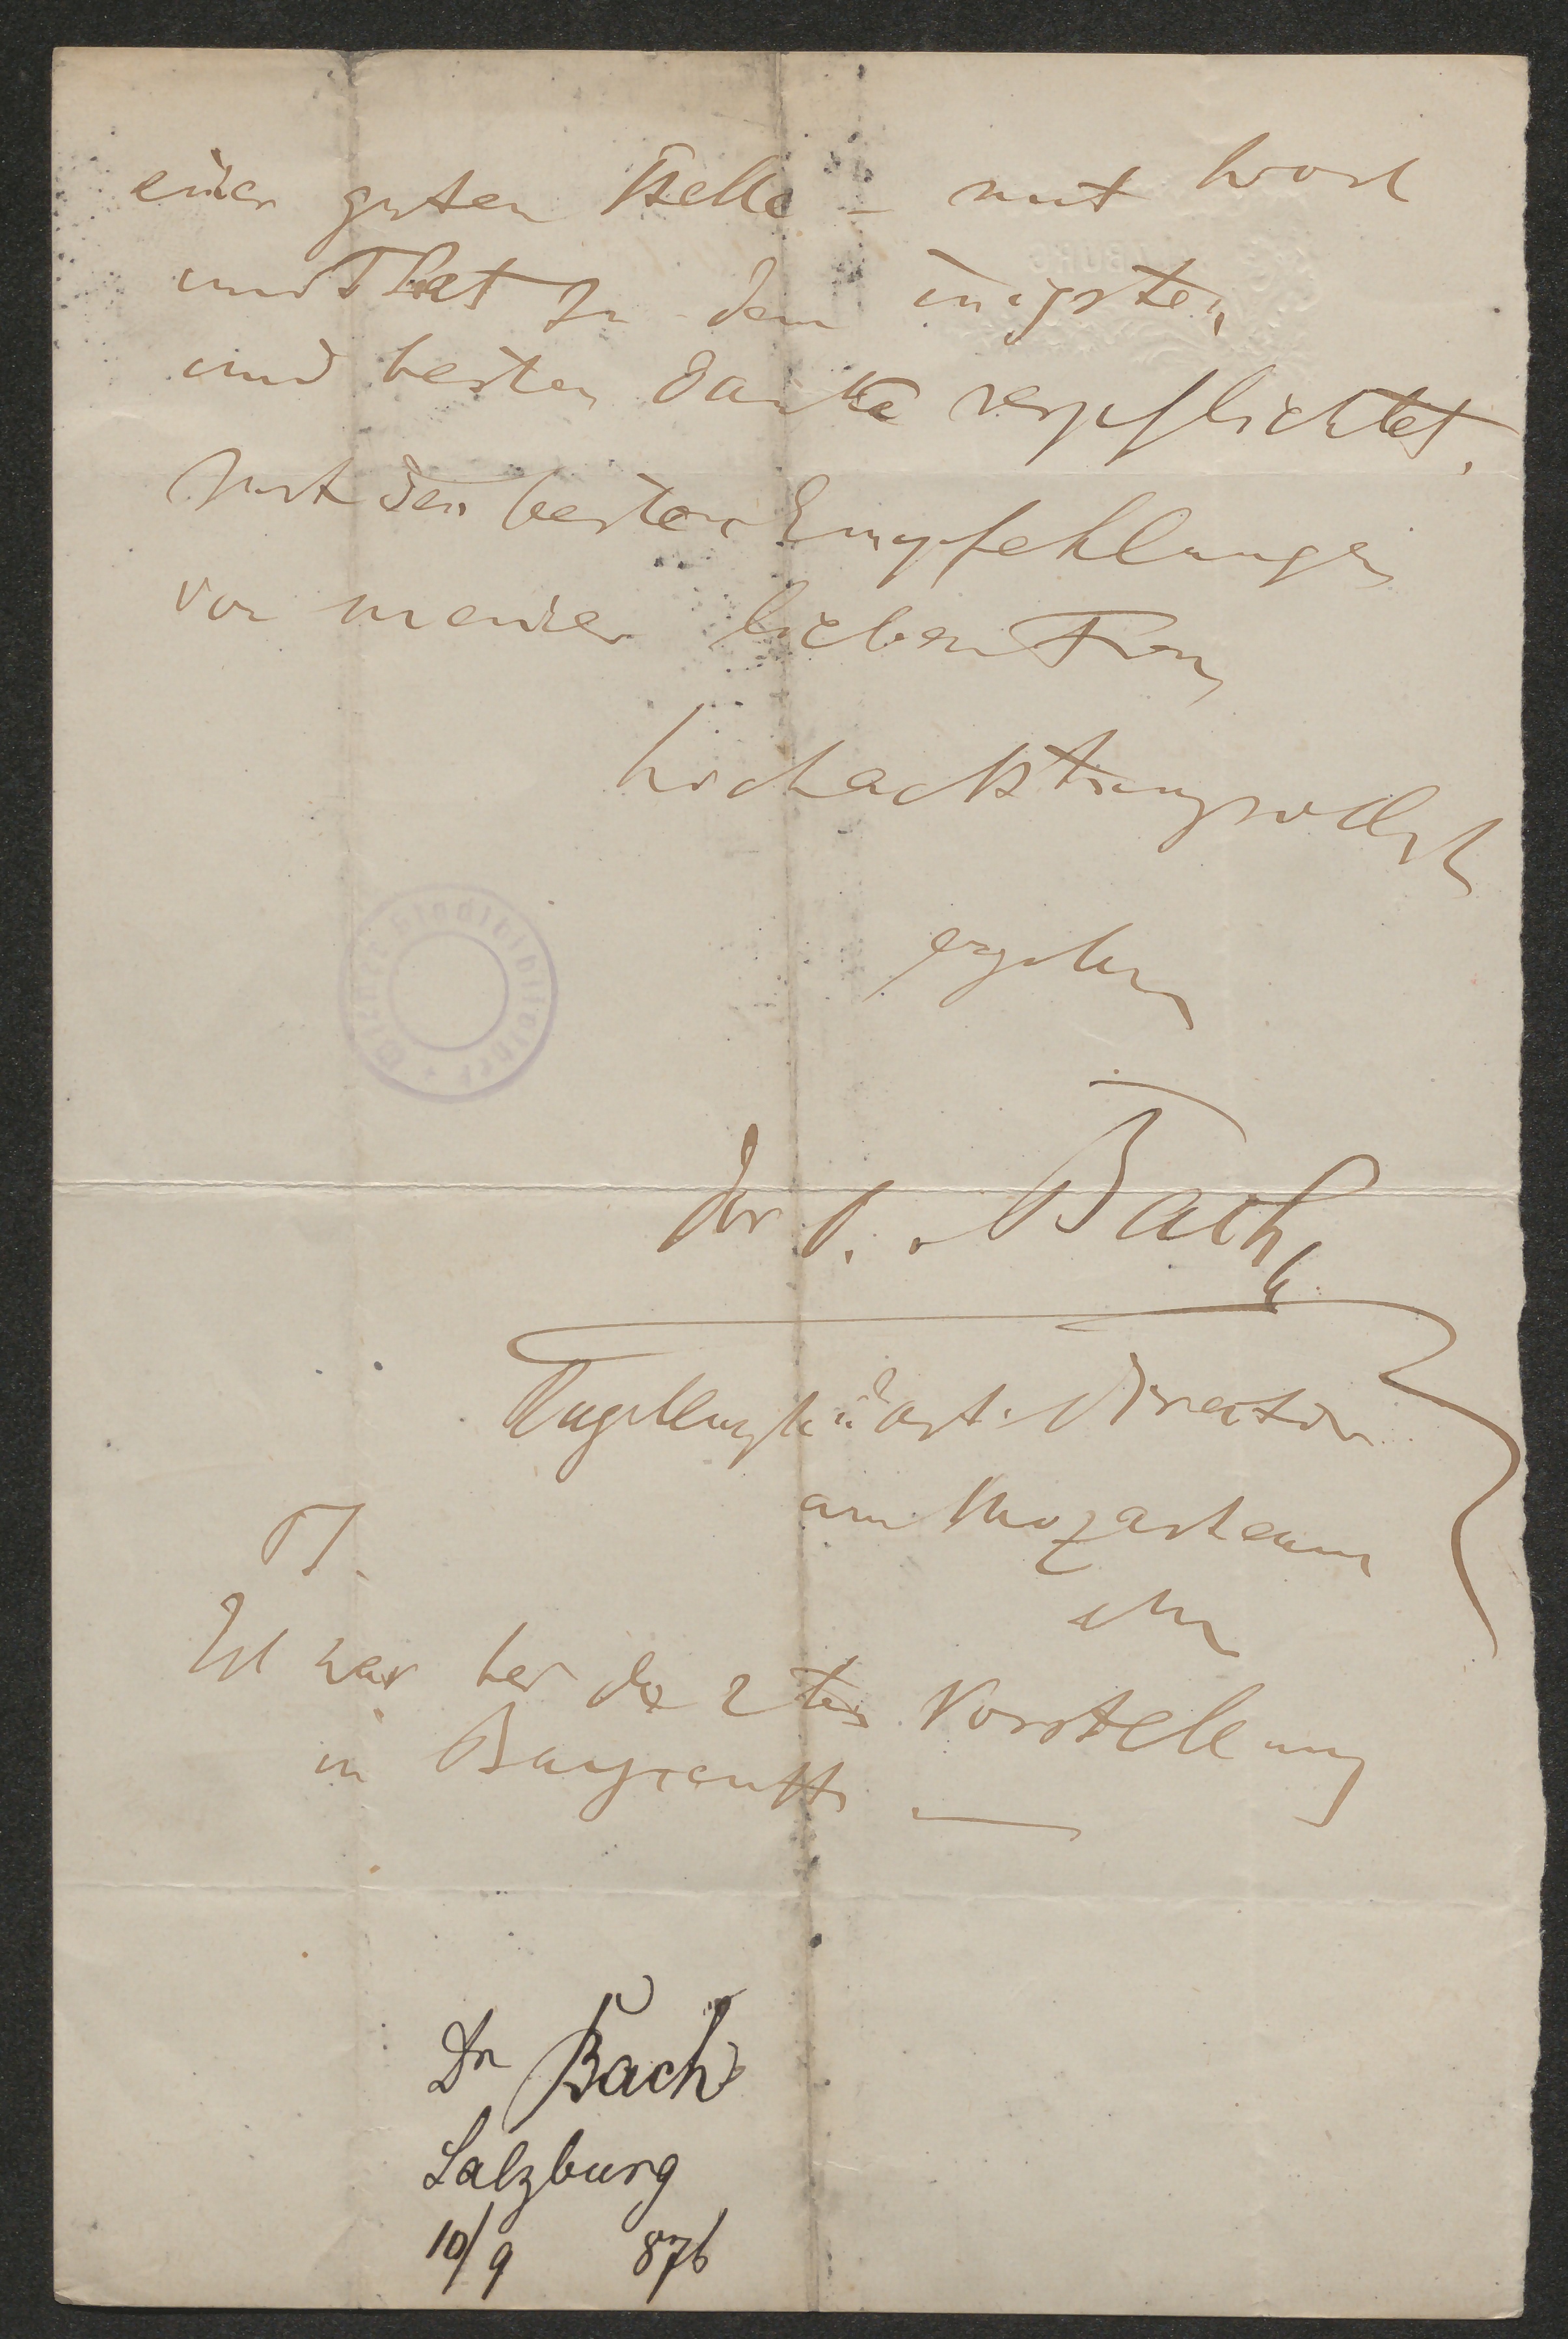 einer guten Stelle – mit Wort
und That zu dem innigsten
und besten Danke verpflichtet.
Mit den besten Empfehlungen
von meiner lieben Frau
hochachtungsvollst
ergeben
Dr O. Bach
art. Director
am Mozarteum
PS.
Ich war bei der 2ten Vorstellung
in Bayreuth —
Dr Bach
Salzburg
10/9 876